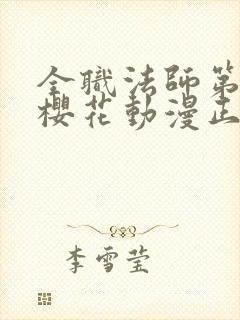 全職法師第
櫻花動漫正
李雪莹